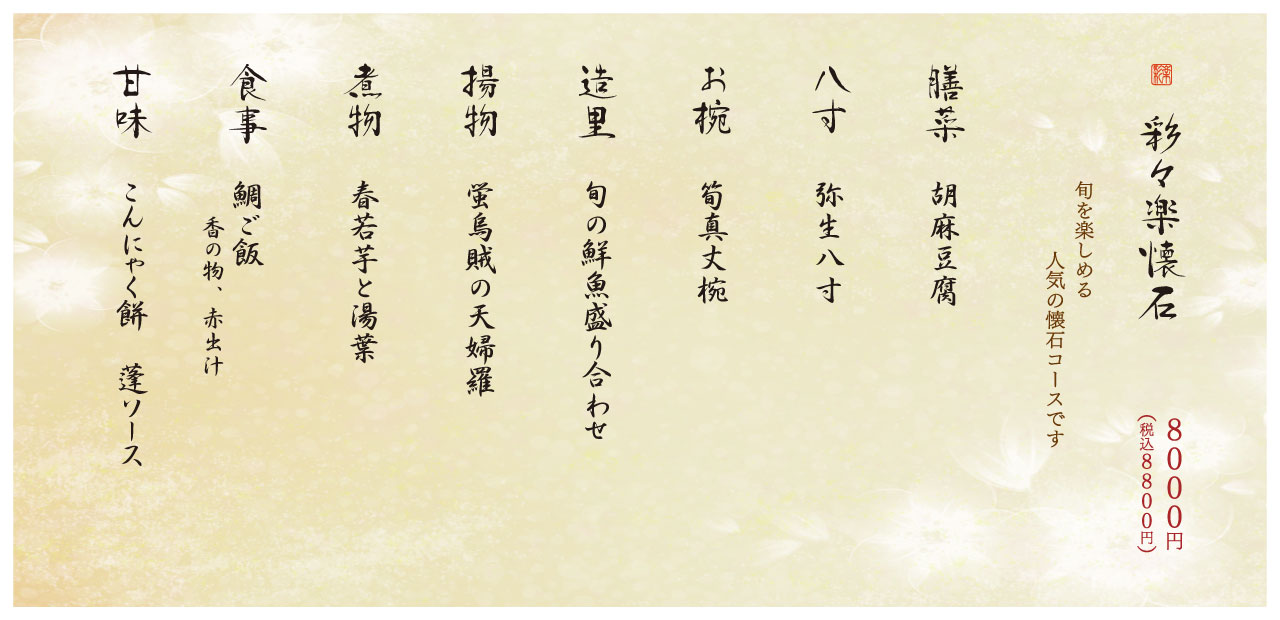 彩々楽懐石
8000円
(税込8800円)
旬を楽しめる
人気の懐石コースです
膳菜 胡麻豆腐
八寸 弥生八寸
お椀 筍真丈椀
造里 旬の鮮魚盛り合わせ
揚物 蛍烏賊の天婦羅
煮物 春若芋と湯葉
食事 鯛ご飯
香の物、赤出汁
甘味 こんにゃく餅 蓬ソース